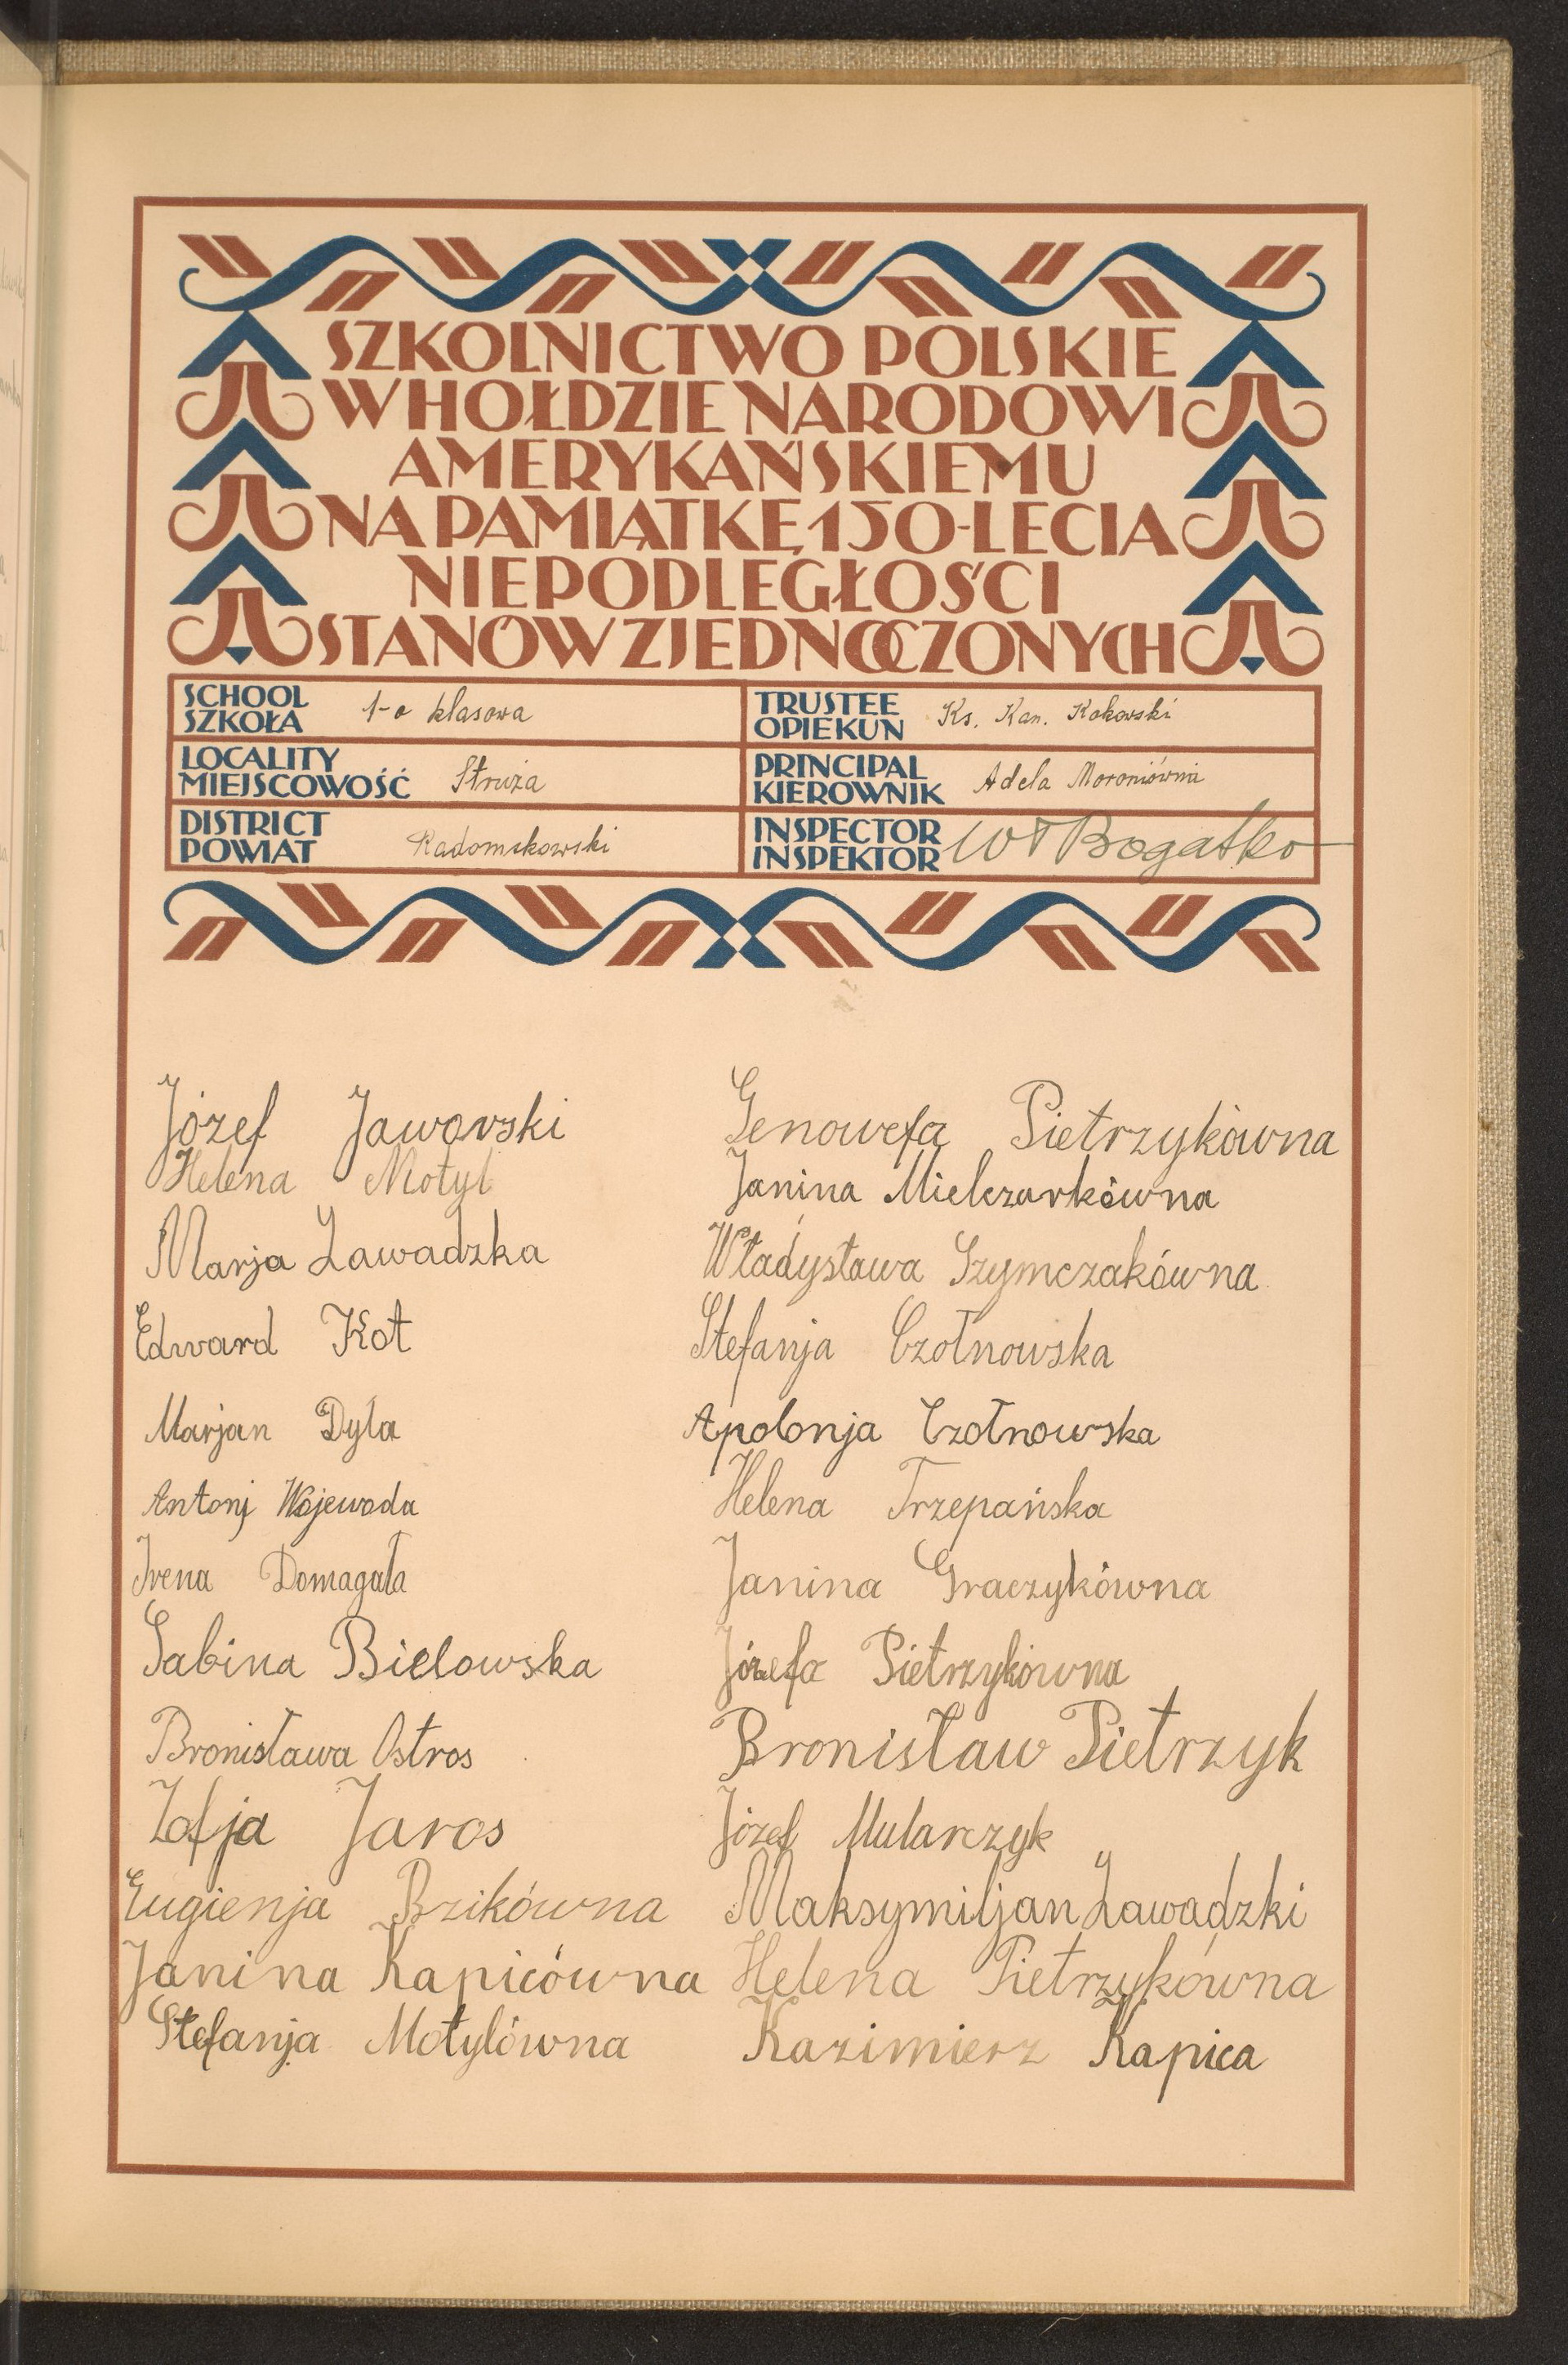 SZKOLNICTWO POLSKIE
W HOŁDZIE NARODOWI
AMERYKAŃSKIEMU
NA PAMIĄTKĘ 150-LECIA
NIEPODLEGŁOŚCI
STANÓW ZJEDNOCZONYCH
SCHOOL
SZKOŁA 1-o klasowa
TRUSTEE
OPIEKUN Ks. Kan. Kokowski
LOCALITY
MIEJSCOWOŚĆ Struża
PRINCIPAL
KIEROWNIK Adela Moroniówna
DISTRICT
POWIAT Radomskowski
INSPECTOR
INSPEKTOR Wł Bogatko
Józef Jaworski
Helena Motyl
Marja Zawadzka
Edward Kot
Marjan Dyla
Antonj Wojewoda
Irena Domagała
Sabina Bielowska
Bronisława Ostros
Zofja Jaros
Eugienja Bzikówna
Janina Kapicówna
Stefanja Motylówna
Genowefa Pietrzykówna
Janina Mielczarkówna
Władysława Szymczakówna
Stefanja Czołnowska
Apolonja Czołnowska
Helena Trzepańska
Janina Graczykówna
Józefa Pietrzykówna
Bronisław Pietrzyk
Józef Mularczyk
Maksymiljan Zawadzki
Helena Pietrzykówna
Kazimierz Kapica